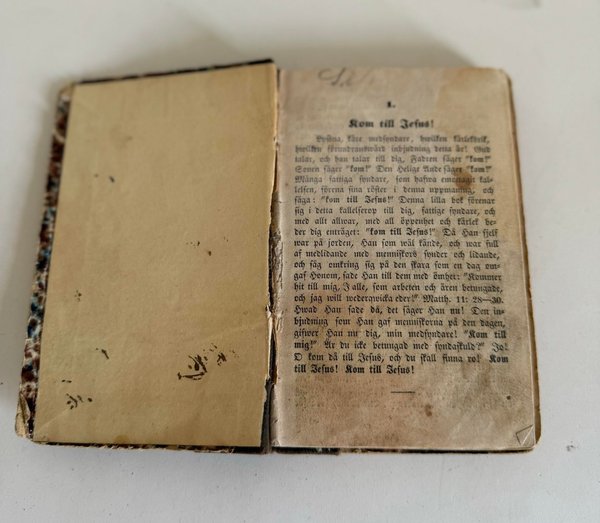 1.
Kom till Jesus!
Lyssna, käre medsyndare, hwilken kärleksrik,
hwilken förundranswärd inbjudning detta är! Gud
talar, och han talar till dig. Fadren säger "kom!"
Sonen säger "kom!" Den Helige Ande säger "kom!"
Många fattiga syndare, som hafwa emottagit kal-
lelsen, förena sina röster i denna uppmaning, och
säga: "kom till Jesus!" Denna lilla bok förenar
sig i detta kallelserop till dig, fattige syndare, och
med allt allwar, med all öppenhet och kärlek be-
der dig enträget: "kom till Jesus!" Då Han sjelf
war på jorden, Han som wäl kände, och war full
af medlidande med menniskors synder och lidande,
och såg omkring sig på den skara som en dag om-
gaf Honom, sade Han till dem med ömhet: "Kommer
hit till mig, I alle, som arbeten och ären betungade,
och jag will wederqwicka eder!" Matth. 11: 28—30.
Hwad Han sade då, det säger Han nu! Den in-
bjudning som Han gaf menniskorna på den dagen,
gifwer Han nu dig, min medsyndare! "Kom till
mig!" Är du icke betungad med syndaskuld?" Jo!
O kom då till Jesus, och du skall finna ro! Kom
till Jesus! Kom till Jesus!